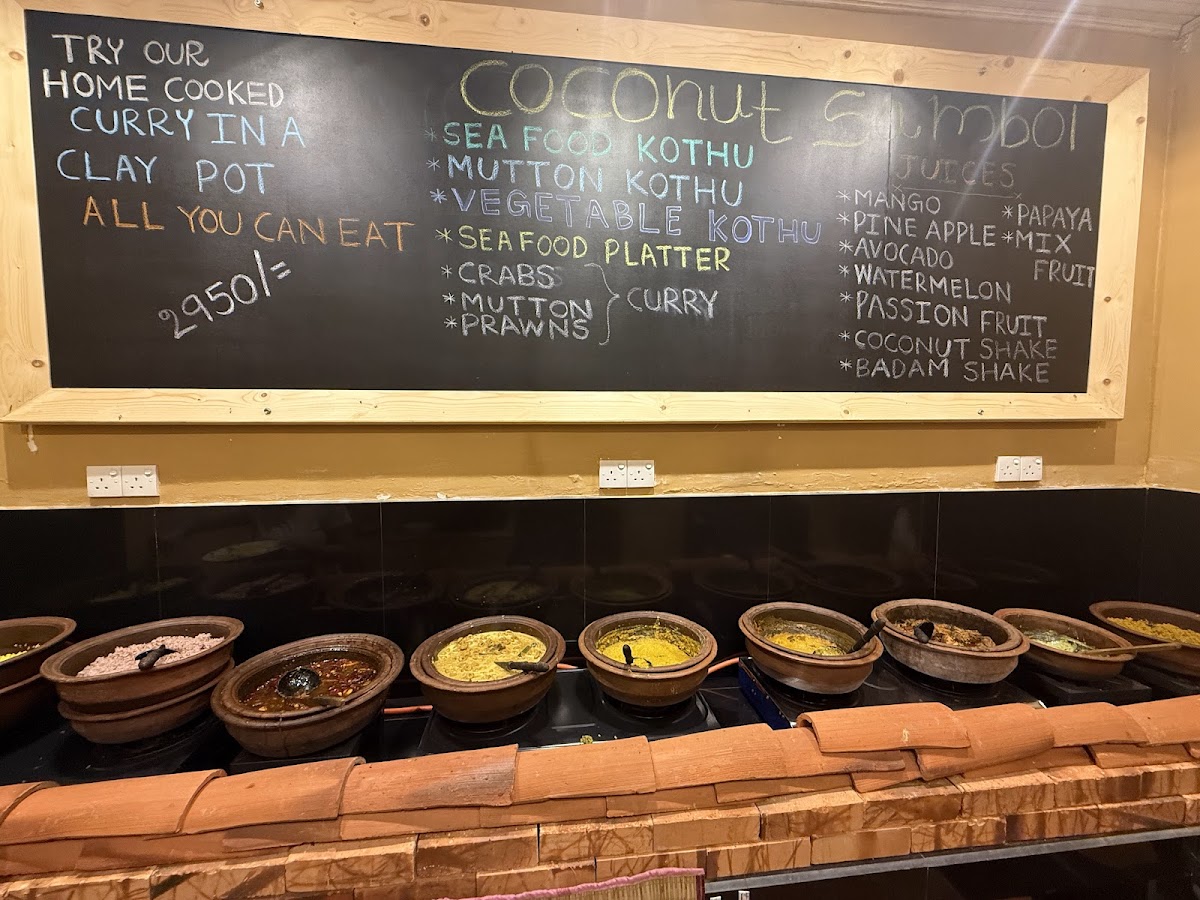 TRY OUR
HOME COOKED
CURRY IN A
CLAY POT
ALL YOU CAN EAT
2950/=
Coconut Sambol
*SEA FOOD KOTHU
*MUTTON KOTHU
*VEGETABLE KOTHU
*SEAFOOD PLATTER
*CRABS
*MUTTON
*PRAWNS
CURRY
JUICES
*MANGO
*PINE APPLE
*AVOCADO
*WATERMELON
*PASSION FRUIT
*COCONUT SHAKE
*BADAM SHAKE
*PAPAYA
*MIX
FRUIT